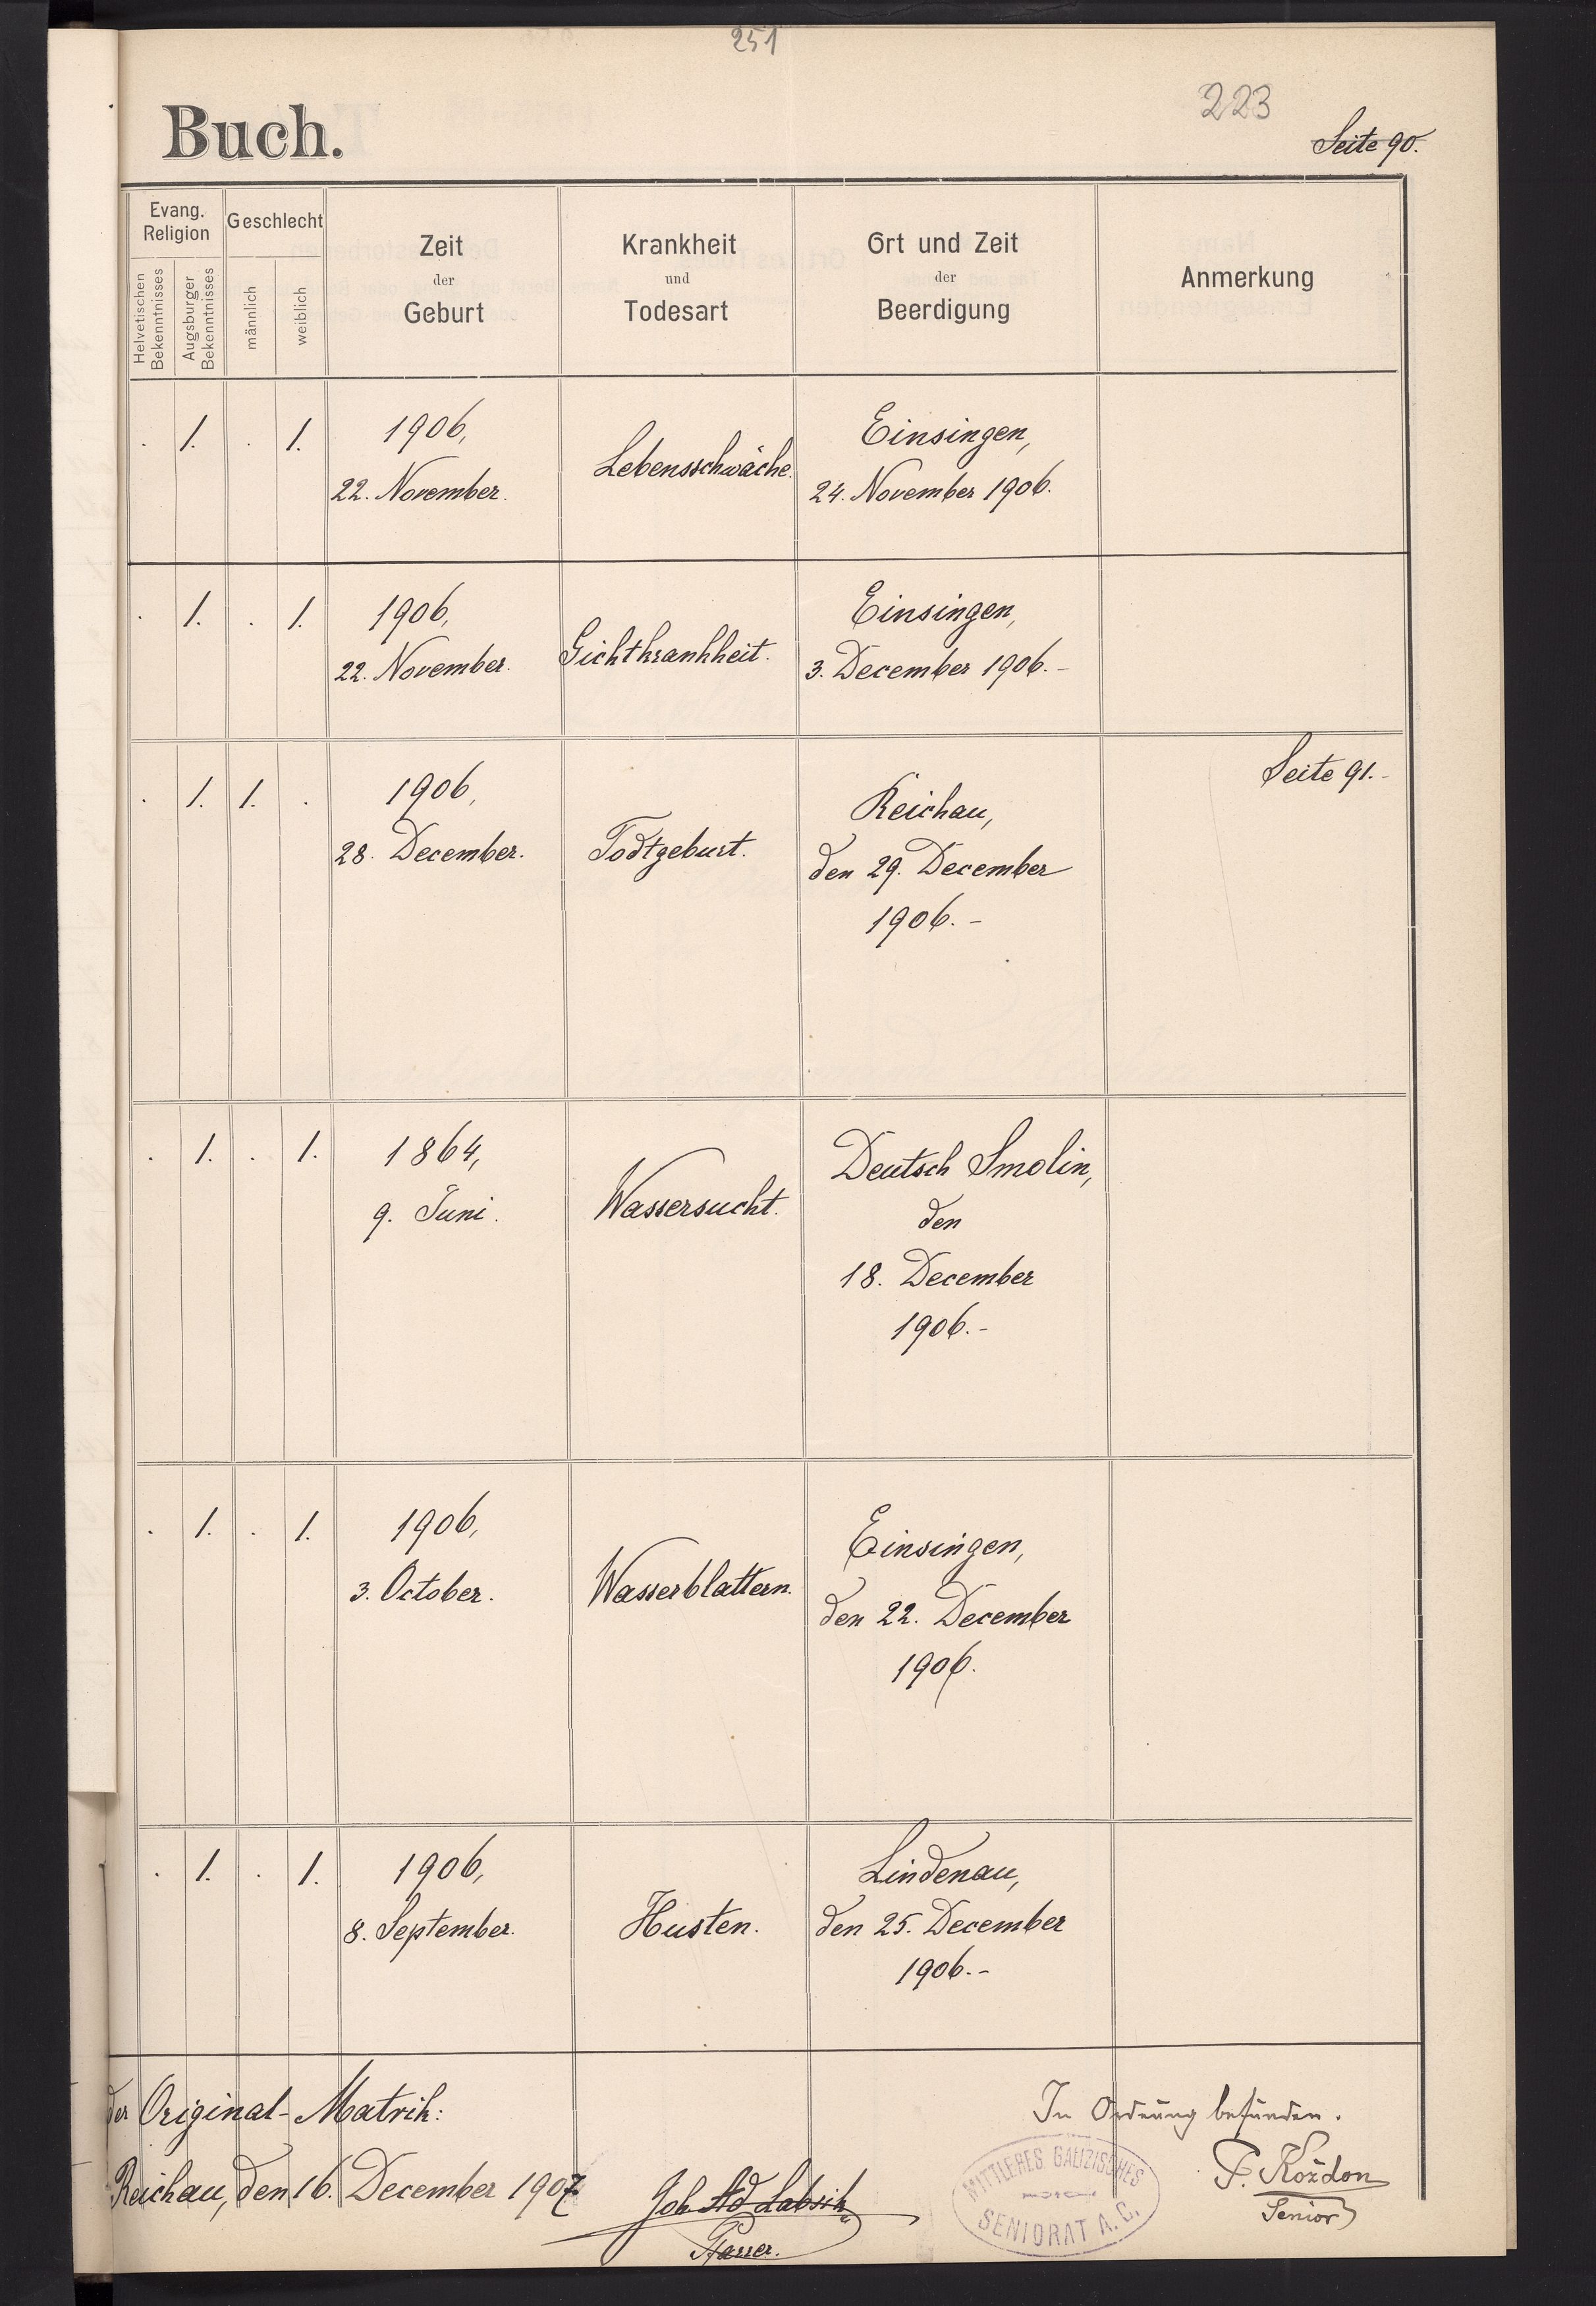 251
223
Buch.
Seite 90.
Evang. Religion
Geschlecht
Helvetischen Bekenntnisses
Augsburger Bekenntnisses
männlich
weiblich
Zeit
der
Geburt
Krankheit
und
Todesart
Ort und Zeit
der
Beerdigung
Anmerkung
. 1. . 1.
1906,
22. November.
Lebensschwäche.
Einsingen,
24. November 1906.
. 1. . 1.
1906,
22. November.
Gichtkrankheit.
Einsingen,
3. December 1906.-
Seite 91.-
. 1. 1. .
1906,
28. December.
Todtgeburt.
Reichau,
den 29. December
1906.-
. 1. . 1.
1864,
9. Juni.
Wassersucht.
Deutsch Smolin,
den
18. December
1906.-
. 1. . 1.
1906,
3. October.
Wasserblattern.
Einsingen,
den 22. December
1906.
. 1. . 1.
1906,
8. September.
Husten.
Lindenau,
den 25. December
1906.-
der Original-Matrik:
Reichau, den 16. December 1907
Joh. Ad. Labsik
Pfarrer.
In Ordnung befunden.
MITTLERES GALIZISCHES
SENIORAT A. C.
P. Koždon
Senior